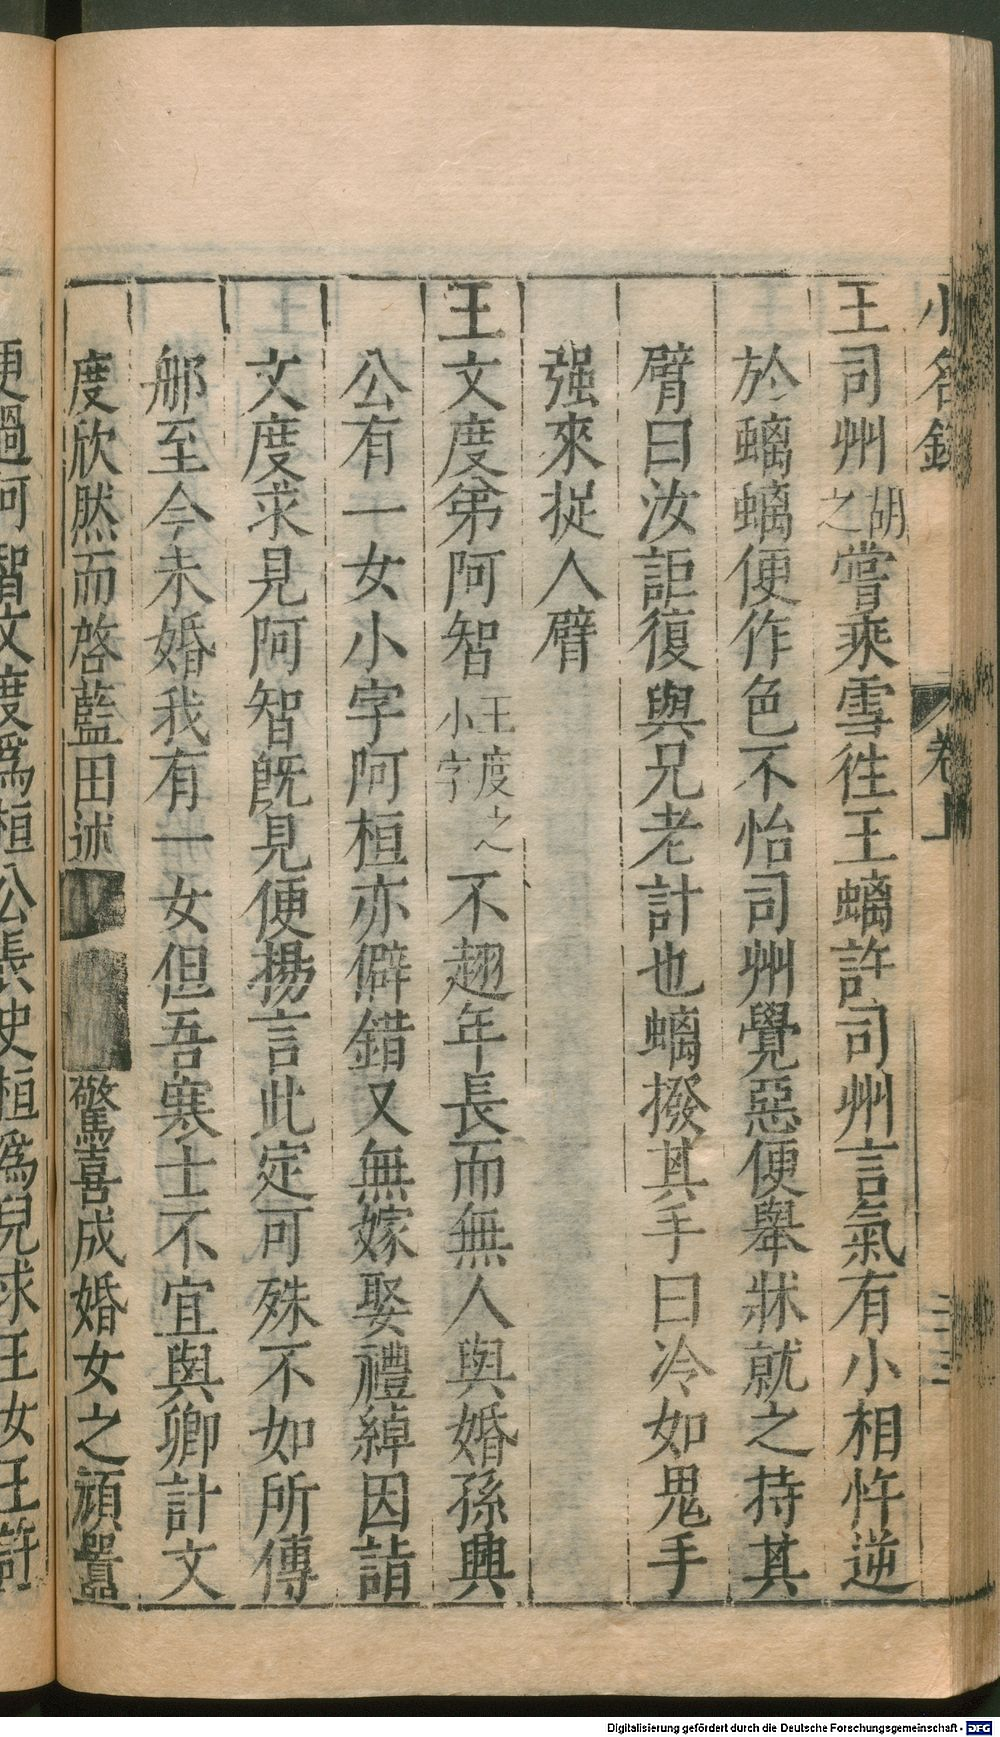 小名錄 卷上 二十三
王司州胡之嘗乘雪徃王螭許司州言氣有小相忤逆
於螭螭便作色不怡司州覺惡便舉牀就之持其
臂曰汝詎復與兄老計也螭撥其手曰冷如鬼手
强來捉人臂
王文度弟阿智王度之小字不翅年長而無人與婚孫興
公有一女小字阿桓亦僻錯又無嫁娶禮綽因詣
文度求見阿智旣見便揚言此定可殊不如所傳
那至今未婚我有一女但吾寒士不宜與卿計文
度欣然而啓藍田述驚喜成婚女之頑嚚
便過阿智文度爲桓公長史桓爲兒求王女王許
Digitalisierung gefördert durch die Deutsche Forschungsgemeinschaft - DFG